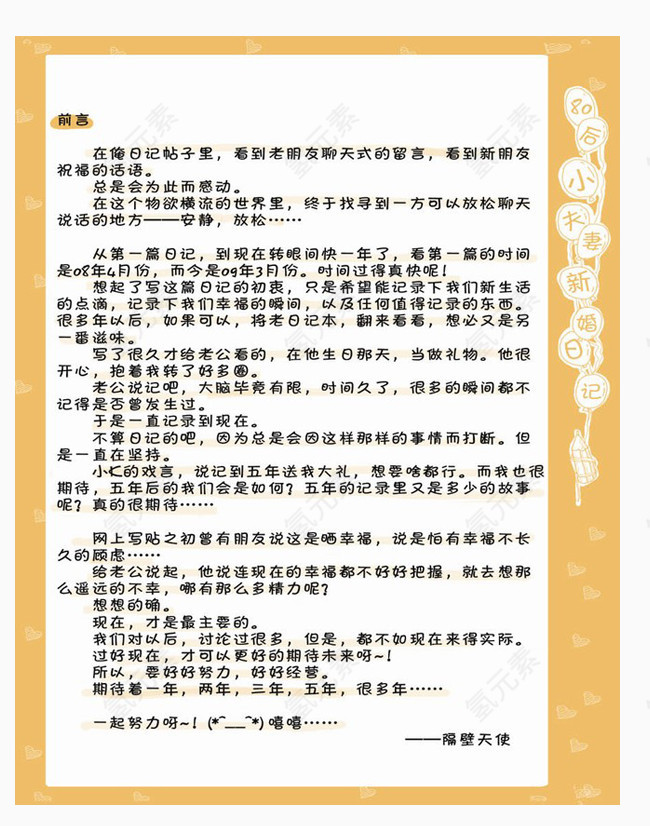 前言
在俺日记帖子里，看到老朋友聊天式的留言，看到新朋友
祝福的话语。
总是会为此而感动。
在这个物欲横流的世界里，终于找寻到一方可以放松聊天
说话的地方——安静，放松……
从第一篇日记，到现在转眼间快一年了，看第一篇的时间
是08年4月份，而今是09年3月份。时间过得真快呢！
想起了写这篇日记的初衷，只是希望能记录下我们新生活
的点滴，记录下我们幸福的瞬间，以及任何值得记录的东西。
很多年以后，如果可以，将老日记本，翻来看看，想必又是另
一番滋味。
写了很久才给老公看的，在他生日那天，当做礼物。他很
开心，抱着我转了好多圈。
老公说记吧，大脑毕竟有限，时间久了，很多的瞬间都不
记得是否曾发生过。
于是一直记录到现在。
不算日记的吧，因为总是会因这样那样的事情而打断。但
是一直在坚持。
小K的戏言，说记到五年送我大礼，想要啥都行。而我也很
期待，五年后的我们会是如何？五年的记录里又是多少的故事
呢？真的很期待……
网上写贴之初曾有朋友说这是晒幸福，说是怕有幸福不长
久的顾虑……
给老公说起，他说连现在的幸福都不好好把握，就去想那
么遥远的不幸，哪有那么多精力呢？
想想的确。
现在，才是最主要的。
我们对以后，讨论过很多，但是，都不如现在来得实际。
过好现在，才可以更好的期待未来呀~！
所以，要好好努力，好好经营。
期待着一年，两年，三年，五年，很多年……
一起努力呀~！(*^__^*) 嘻嘻……
——隔壁天使
80后小夫妻新婚日记
氢元素
氢元素
氢元素
氢元素
氢元素
氢元素
氢元素
氢元素
氢元素